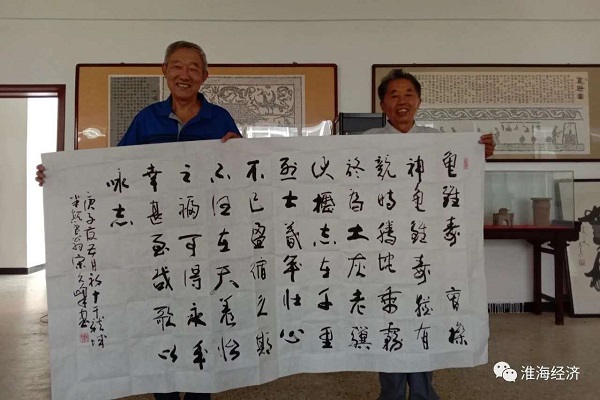 龜雖壽 曹操
神龜雖壽猶有
競時騰蛇乘霧
終為土灰老驥
伏櫪志在千里
烈士暮年壮心
不已盈縮之期
不但在天养怡
之福可得永年
幸甚至哉歌以
咏志
庚子夏五月初十于彭城
淮海经济